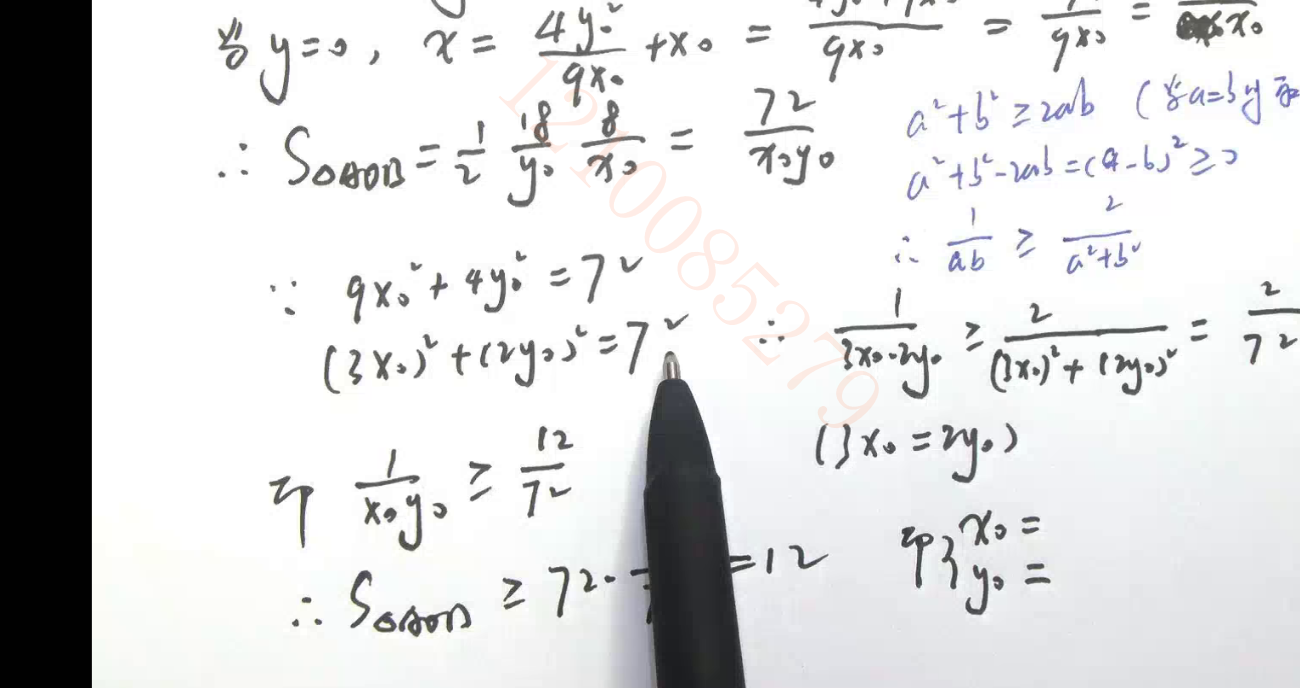 当y=0, x = 4y₀²/9x₀ + x₀ = /9x₀ = /9x₀ = /x₀
∴ S△AOB = 1/2 18/y₀ 8/x₀ = 72/x₀y₀
a²+b² ≥ 2ab (当a=b时取
a²+b²-2ab=(a-b)² ≥ 0
∴ 1/ab ≥ 2/a²+b²
∵ 9x₀²+4y₀²=72
(3x₀)²+(2y₀)²=72
∴ 1/3x₀·2y₀ ≥ 2/(3x₀)²+(2y₀)² = 2/72
(3x₀=2y₀)
即 1/x₀y₀ ≥ 12/72
即{x₀=
y₀=
∴ S△AOB ≥ 72· =12
1210085279